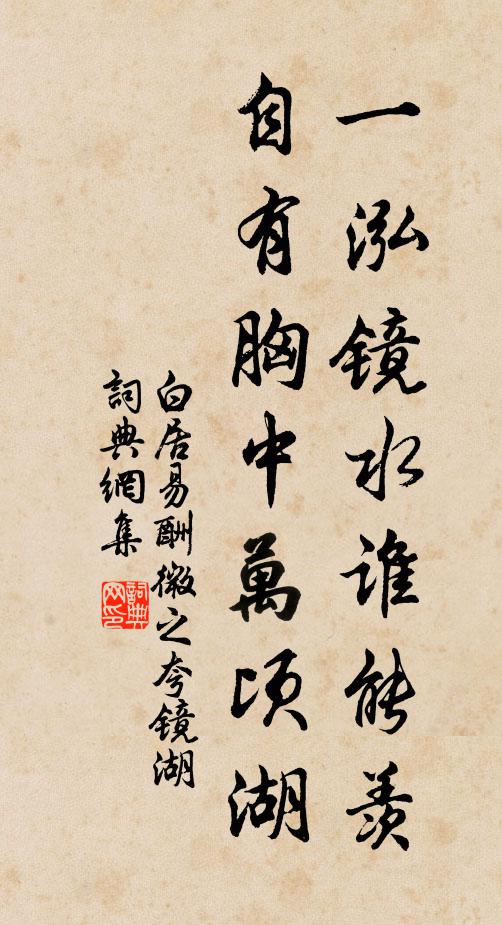 一泓镜水谁能羡
自有胸中萬顷湖
白居易酬微之夸镜湖
詞典網集
詞典
网印